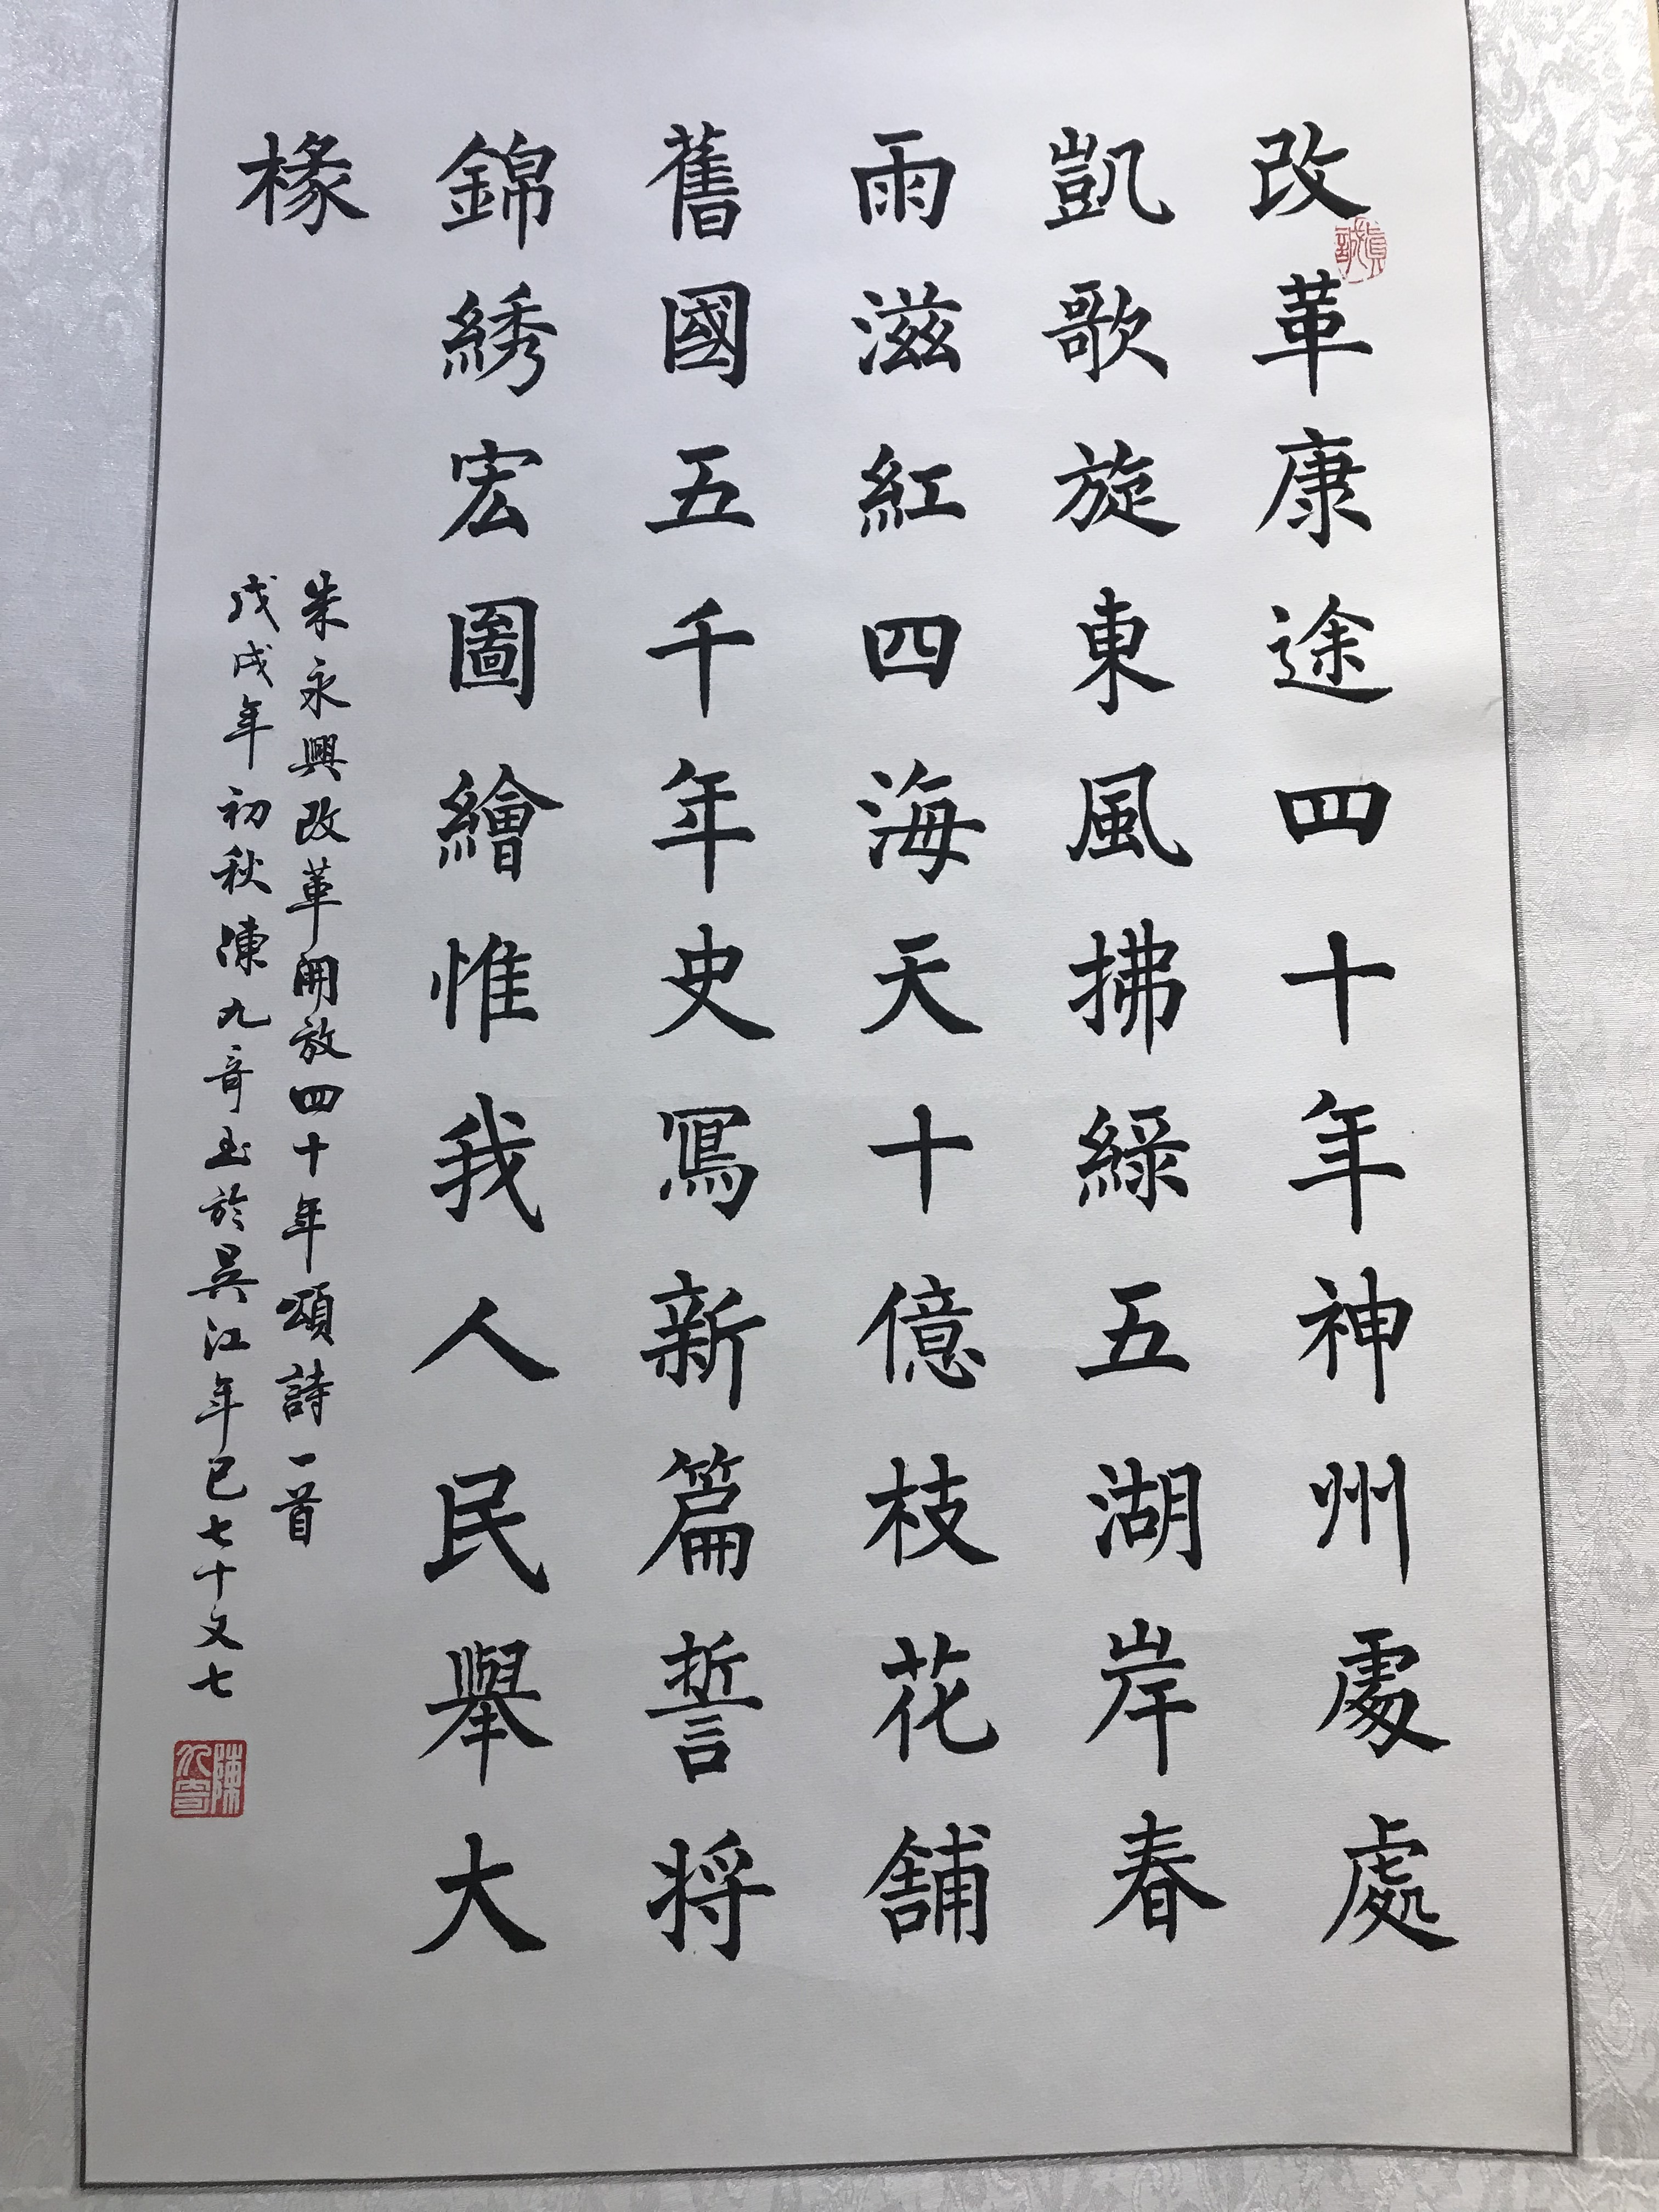 改革康途四十年神州處處
凱歌旋東風拂綠五湖岸春
雨滋紅四海天十億枝花舖
舊國五千年史寫新篇誓将
錦綉宏圖繪惟我人民舉大
椽
朱永興改革開放四十年頌詩一首
戊戌年初秋陳九奇書於吳江年已七十又七
真誠
陳九奇